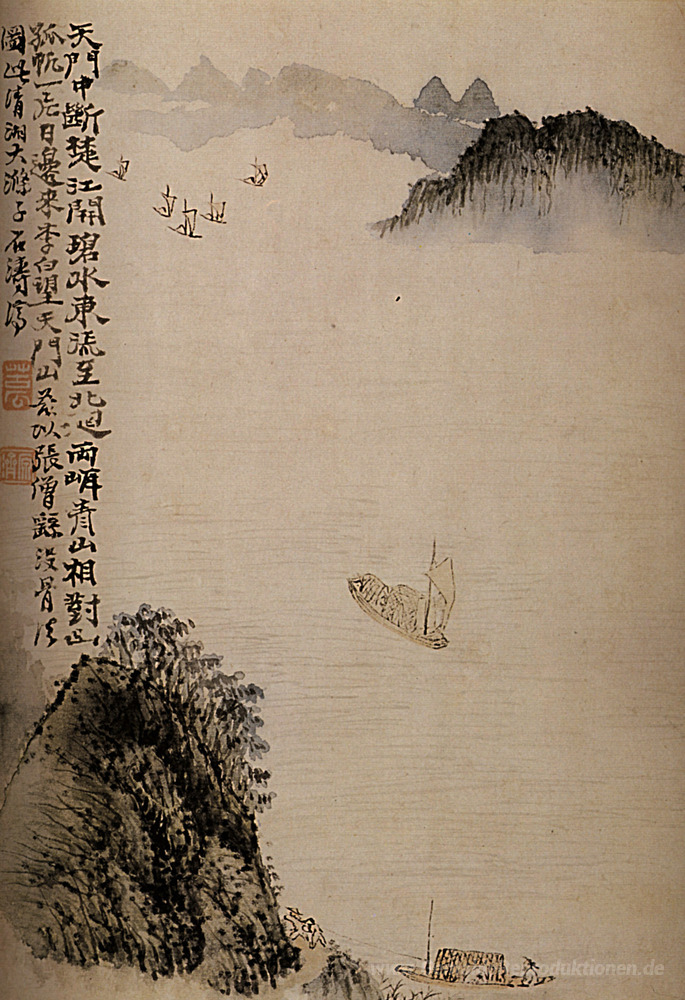 天門中斷楚江開碧水東流至北迴兩岸青山相對出
孤帆一片日邊來李白望天門山茲以張僧繇没骨法
圖此清湘大滌子石濤濟